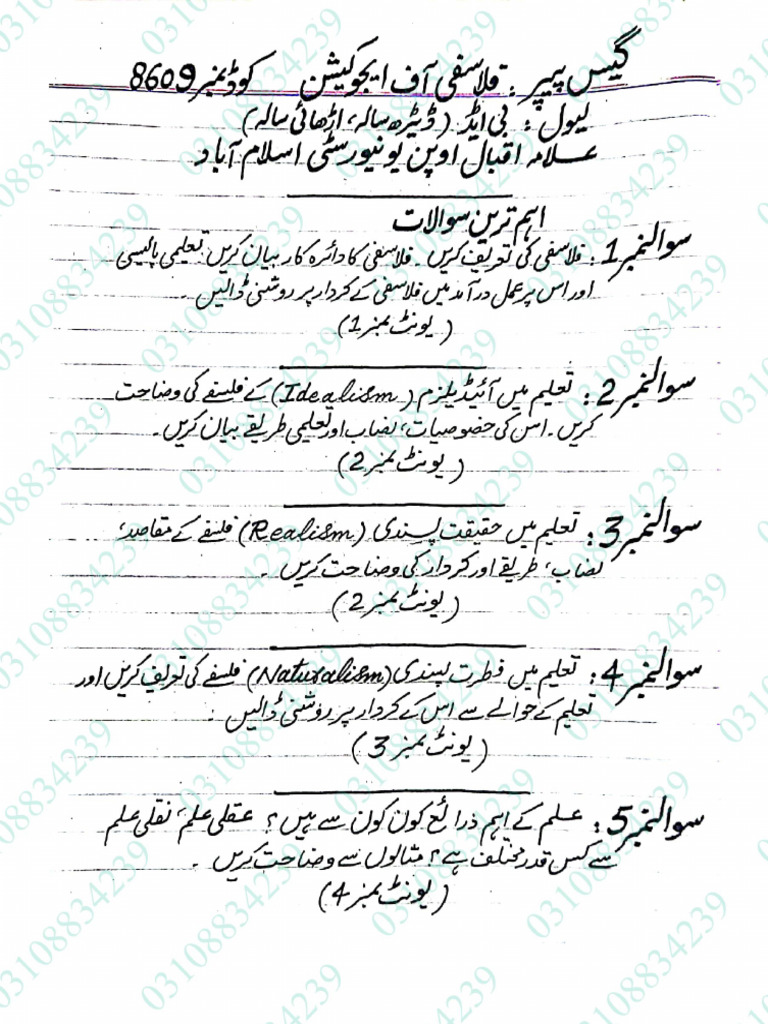 گیس پیپر: فلاسفی آف ایجوکیشن کوڈ نمبر 8609
لیول: بی ایڈ (ڈیڑھ سالہ، اڑھائی سالہ)
علامہ اقبال اوپن یونیورسٹی اسلام آباد
اہم ترین سوالات
سوالنمبر1: فلاسفی کی تعریف کریں۔ فلاسفی کا دائرہ کار بیان کریں۔ تعلیمی پالیسی
اور اس پر عمل درآمد میں فلاسفی کے کردار پر روشنی ڈالیں۔
(یونٹ نمبر 1)
سوالنمبر2: تعلیم میں آئیڈیلزم (Idealism) کے فلسفے کی وضاحت
کریں۔ اس کی خصوصیات، نصاب اور تعلیمی طریقے بیان کریں۔
(یونٹ نمبر 2)
سوالنمبر3: تعلیم میں حقیقت پسندی (Realism) فلسفے کے مقاصد،
نصاب، طریقے اور کردار کی وضاحت کریں۔
(یونٹ نمبر 2)
سوالنمبر4: تعلیم میں فطرت پسندی (Naturalism) فلسفے کی تعریف کریں اور
تعلیم کے حوالے سے اس کے کردار پر روشنی ڈالیں۔
(یونٹ نمبر 3)
سوالنمبر5: علم کے اہم ذرائع کون کون سے ہیں؟ عقلی علم، نقلی علم
سے کس قدر مختلف ہے؟ مثالوں سے وضاحت کریں۔
(یونٹ نمبر 4)
03108834239